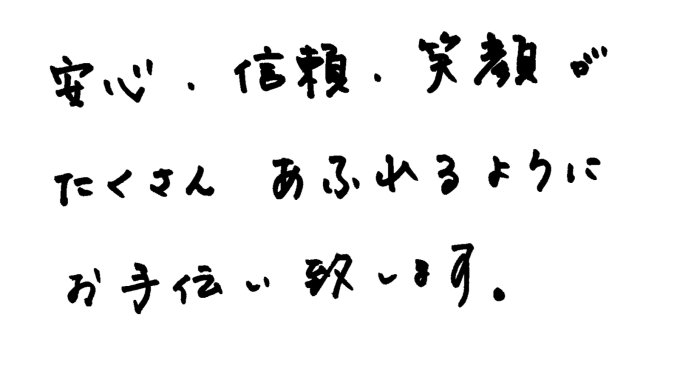 安心・信頼・笑顔が
たくさん あふれるように
お手伝い致します。